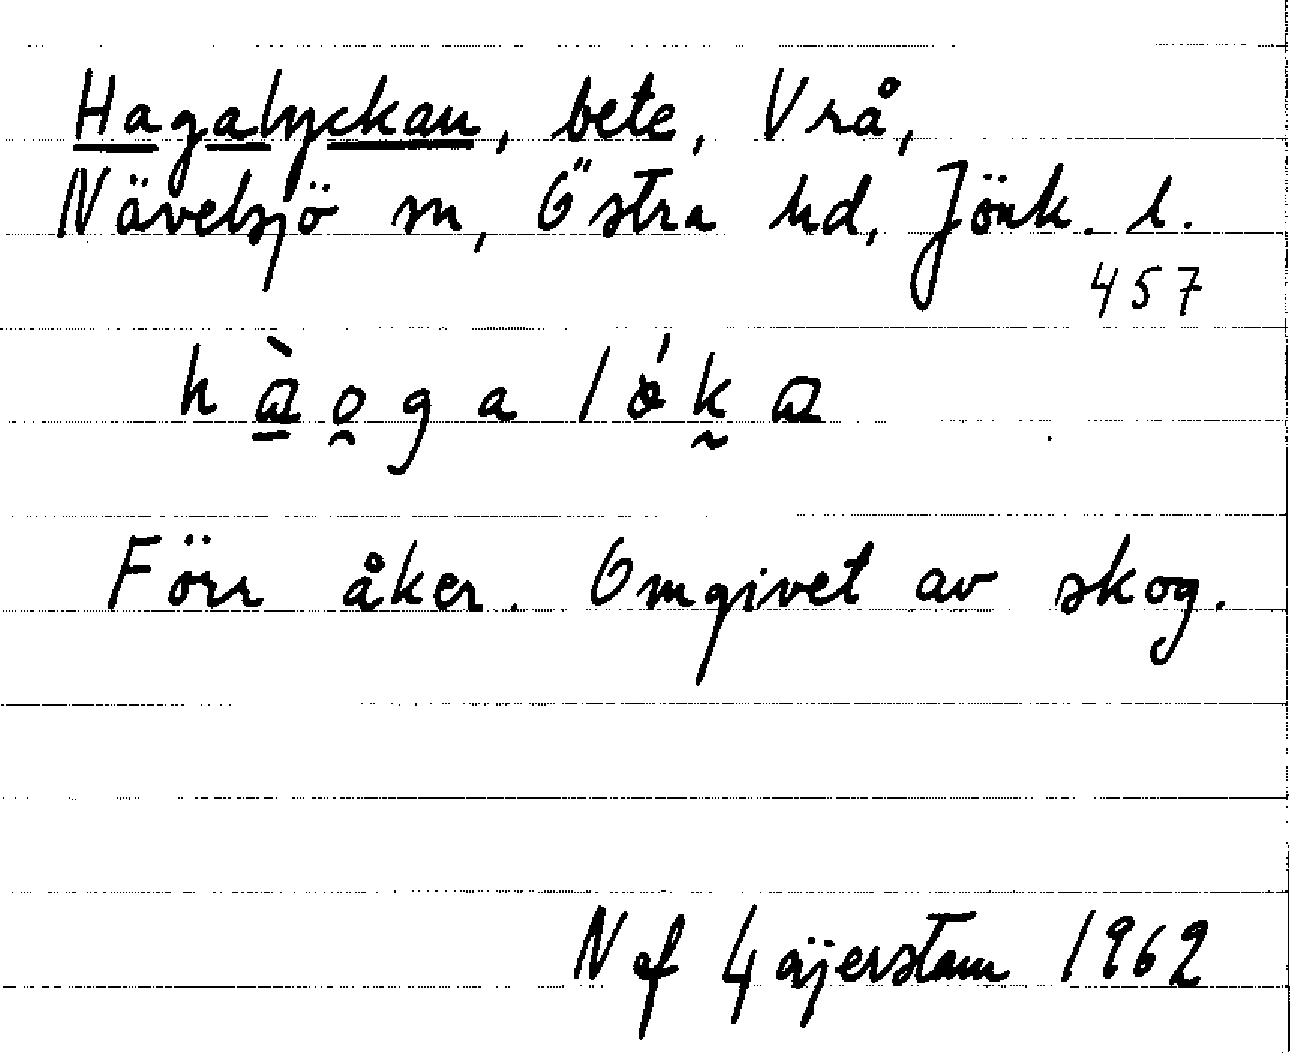 Hagalyckan, bete, Vrå,
Nävelsjö sn, Östra hd, Jönk. l.
457
Förr åker. Omgivet av skog.
Naf Gäijerstam 1962